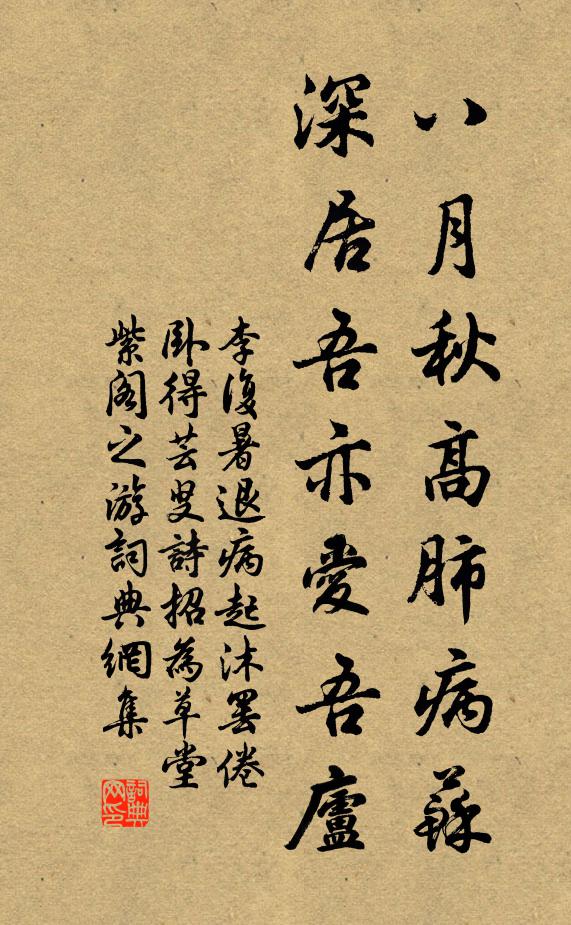 八月秋高肺病蘇
深居吾亦愛吾廬
李復暑退病起沐罷倦
卧得芸叟詩招為草堂
紫閣之游詞典網集
詞典网印